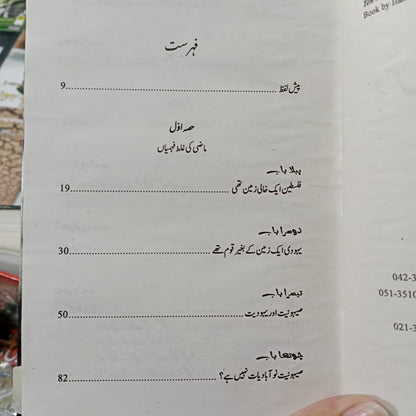 فہرست
پیش لفظ ........................................ 9
حصہ اوّل
ماضی کی غلط فہمیاں
پہلا باب
فلسطین ایک خالی زمین تھی ........................................ 19
دوسرا باب
یہودی ایک زمین کے بغیر قوم تھے ........................................ 30
تیسرا باب
صیہونیت اور یہودیت ........................................ 50
چوتھا باب
صیہونیت نوآبادیات نہیں ہے؟ ........................................ 82
Book by
042-3
051-3510
021-3